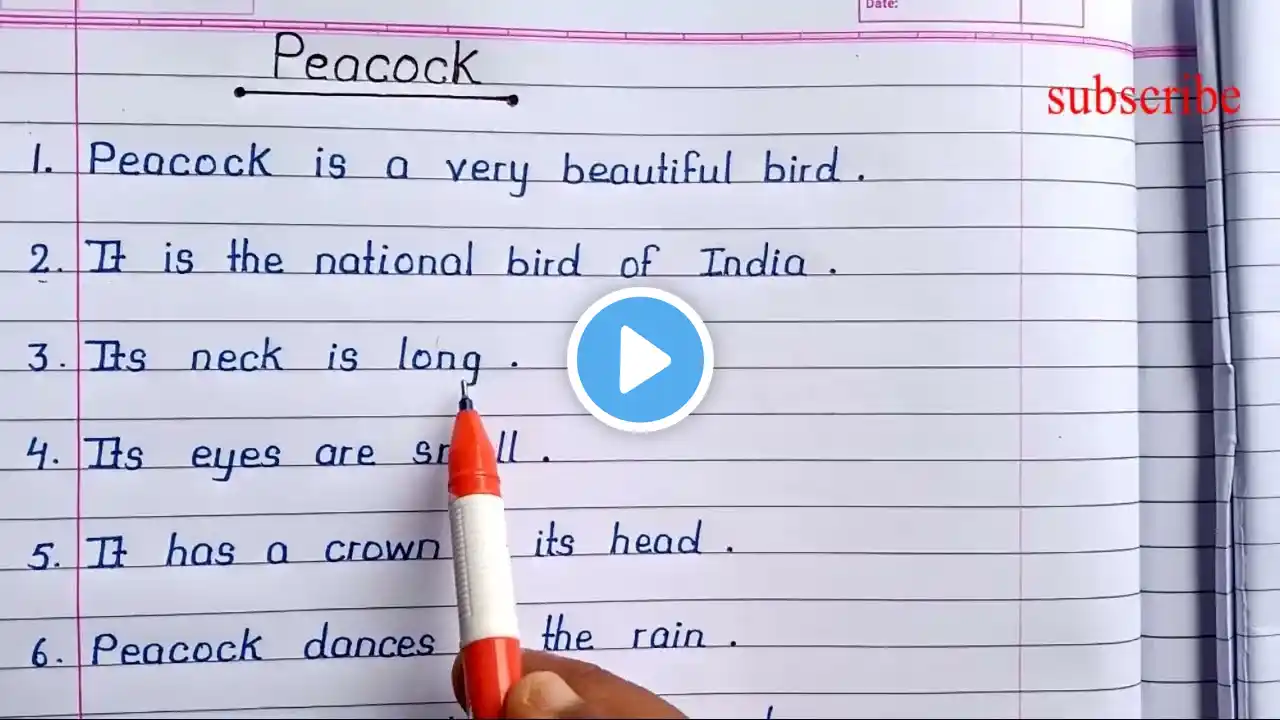 Date:
Peacock
subscribe
1. Peacock is a very beautiful bird.
2. It is the national bird of India.
3. Its neck is long.
4. Its eyes are
5. It has a crown its head.
6. Peacock dances the rain.